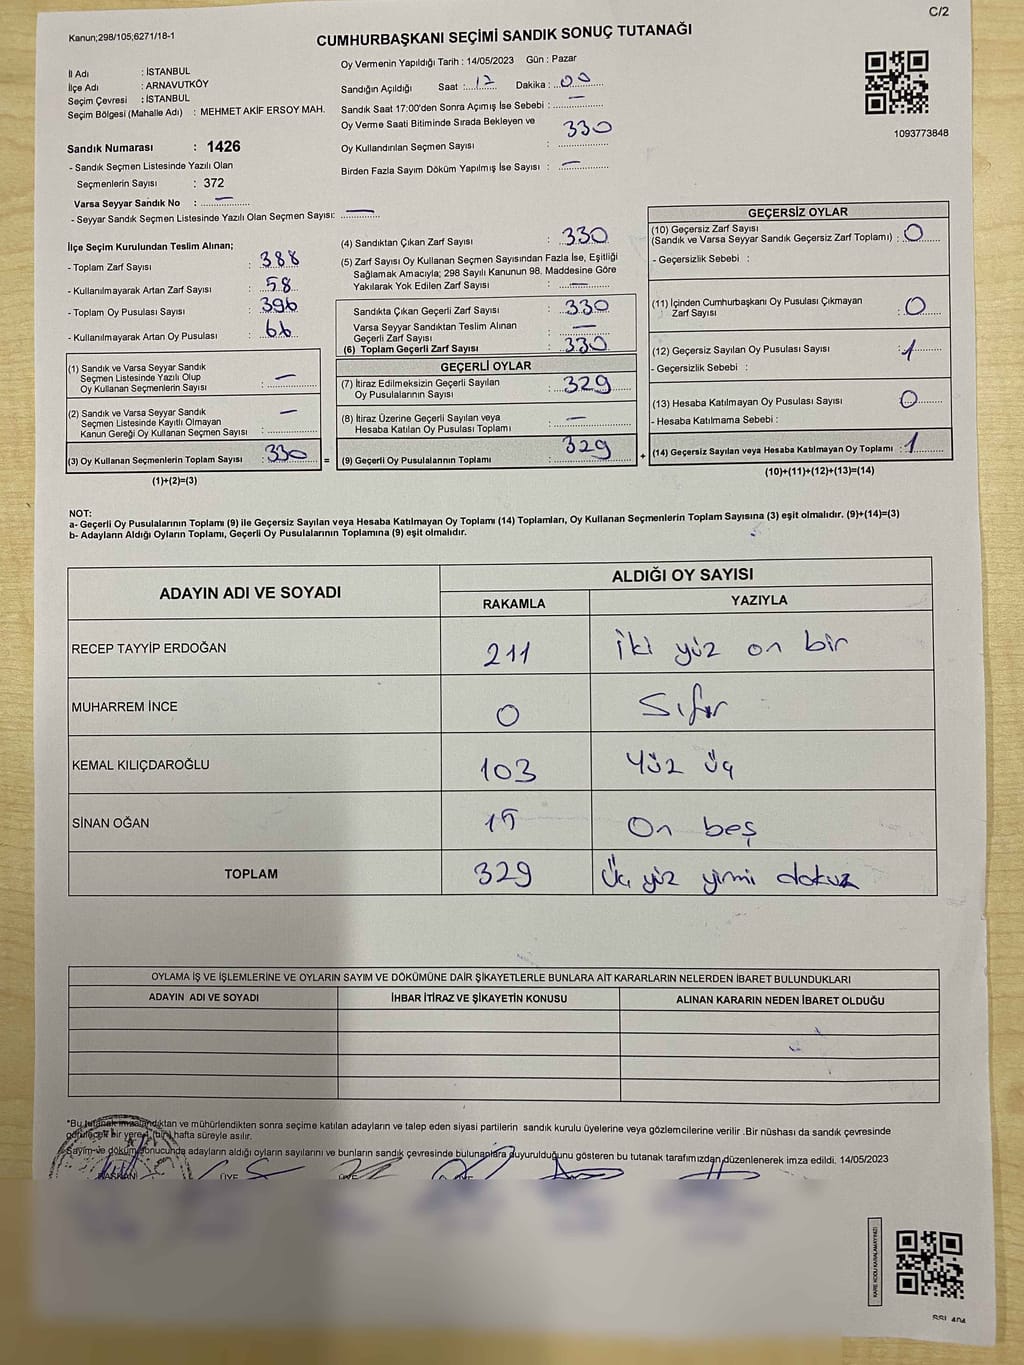 C/2
Kanun;298/105,6271/18-1
CUMHURBAŞKANI SEÇİMİ SANDIK SONUÇ TUTANAĞI
İl Adı : İSTANBUL
İlçe Adı : ARNAVUTKÖY
Seçim Çevresi : İSTANBUL
Seçim Bölgesi (Mahalle Adı) : MEHMET AKİF ERSOY MAH.
Oy Vermenin Yapıldığı Tarih : 14/05/2023 Gün : Pazar
Sandığın Açıldığı Saat : Dakika : 00
Sandık Saat 17:00'den Sonra Açımış İse Sebebi : —
Oy Verme Saati Bitiminde Sırada Bekleyen ve
Oy Kullandırılan Seçmen Sayısı : 330
Birden Fazla Sayım Döküm Yapılmış İse Sayısı : —
1093773848
Sandık Numarası : 1426
- Sandık Seçmen Listesinde Yazılı Olan
Seçmenlerin Sayısı : 372
Varsa Seyyar Sandık No : —
- Seyyar Sandık Seçmen Listesinde Yazılı Olan Seçmen Sayısı: —
İlçe Seçim Kurulundan Teslim Alınan;
- Toplam Zarf Sayısı : 388
- Kullanılmayarak Artan Zarf Sayısı : 58
- Toplam Oy Pusulası Sayısı : 396
- Kullanılmayarak Artan Oy Pusulası : 66
(1) Sandık ve Varsa Seyyar Sandık
Seçmen Listesinde Yazılı Olup
Oy Kullanan Seçmenlerin Sayısı : —
(2) Sandık ve Varsa Seyyar Sandık
Seçmen Listesinde Kayıtlı Olmayan
Kanun Gereği Oy Kullanan Seçmen Sayısı : —
(3) Oy Kullanan Seçmenlerin Toplam Sayısı : 330
(1)+(2)=(3)
=
(4) Sandıktan Çıkan Zarf Sayısı : 330
(5) Zarf Sayısı Oy Kullanan Seçmen Sayısından Fazla İse, Eşitliği
Sağlamak Amacıyla; 298 Sayılı Kanunun 98. Maddesine Göre
Yakılarak Yok Edilen Zarf Sayısı : —
Sandıkta Çıkan Geçerli Zarf Sayısı : 330
Varsa Seyyar Sandıktan Teslim Alınan
Geçerli Zarf Sayısı : —
(6) Toplam Geçerli Zarf Sayısı : 330
GEÇERLİ OYLAR
(7) İtiraz Edilmeksizin Geçerli Sayılan
Oy Pusulalarının Sayısı : 329
(8) İtiraz Üzerine Geçerli Sayılan veya
Hesaba Katılan Oy Pusulası Toplamı : —
(9) Geçerli Oy Pusulalarının Toplamı : 329
+
GEÇERSİZ OYLAR
(10) Geçersiz Zarf Sayısı
(Sandık ve Varsa Seyyar Sandık Geçersiz Zarf Toplamı) : 0
- Geçersizlik Sebebi :
(11) İçinden Cumhurbaşkanı Oy Pusulası Çıkmayan
Zarf Sayısı : 0
(12) Geçersiz Sayılan Oy Pusulası Sayısı : 1
- Geçersizlik Sebebi :
(13) Hesaba Katılmayan Oy Pusulası Sayısı : 0
- Hesaba Katılmama Sebebi :
(14) Geçersiz Sayılan veya Hesaba Katılmayan Oy Toplamı : 1
(10)+(11)+(12)+(13)=(14)
NOT:
a- Geçerli Oy Pusulalarının Toplamı (9) ile Geçersiz Sayılan veya Hesaba Katılmayan Oy Toplamı (14) Toplamları, Oy Kullanan Seçmenlerin Toplam Sayısına (3) eşit olmalıdır. (9)+(14)=(3)
b- Adayların Aldığı Oyların Toplamı, Geçerli Oy Pusulalarının Toplamına (9) eşit olmalıdır.
ADAYIN ADI VE SOYADI
ALDIĞI OY SAYISI
RAKAMLA YAZIYLA
RECEP TAYYİP ERDOĞAN 211 İki yüz on bir
MUHARREM İNCE 0 Sıfır
KEMAL KILIÇDAROĞLU 103 Yüz üç
SİNAN OĞAN 15 On beş
TOPLAM 329 Üç yüz yirmi dokuz
OYLAMA İŞ VE İŞLEMLERİNE VE OYLARIN SAYIM VE DÖKÜMÜNE DAİR ŞİKAYETLERLE BUNLARA AİT KARARLARIN NELERDEN İBARET BULUNDUKLARI
ADAYIN ADI VE SOYADI İHBAR İTİRAZ VE ŞİKAYETİN KONUSU ALINAN KARARIN NEDEN İBARET OLDUĞU
*Bu tutanak imzalandıktan ve mühürlendikten sonra seçime katılan adayların ve talep eden siyasi partilerin sandık kurulu üyelerine veya gözlemcilerine verilir .Bir nüshası da sandık çevresinde
görülecek bir yere 1 (bir) hafta süreyle asılır.
Sayım ve döküm sonucunda adayların aldığı oyların sayılarını ve bunların sandık çevresinde bulunanlara duyurulduğunu gösteren bu tutanak tarafımızdan düzenlenerek imza edildi. 14/05/2023
BAŞKAN ÜYE ÜYE
KARE KODU KARALAMAYINIZ!